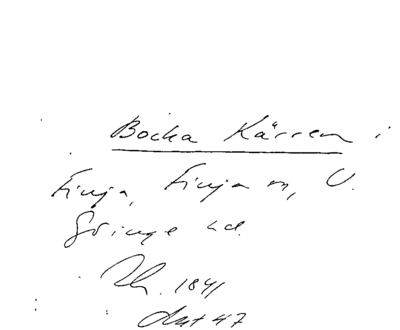 Bocka Kärren
Finja, Finja m, V.
Göinge hd.
1841
Akt 47